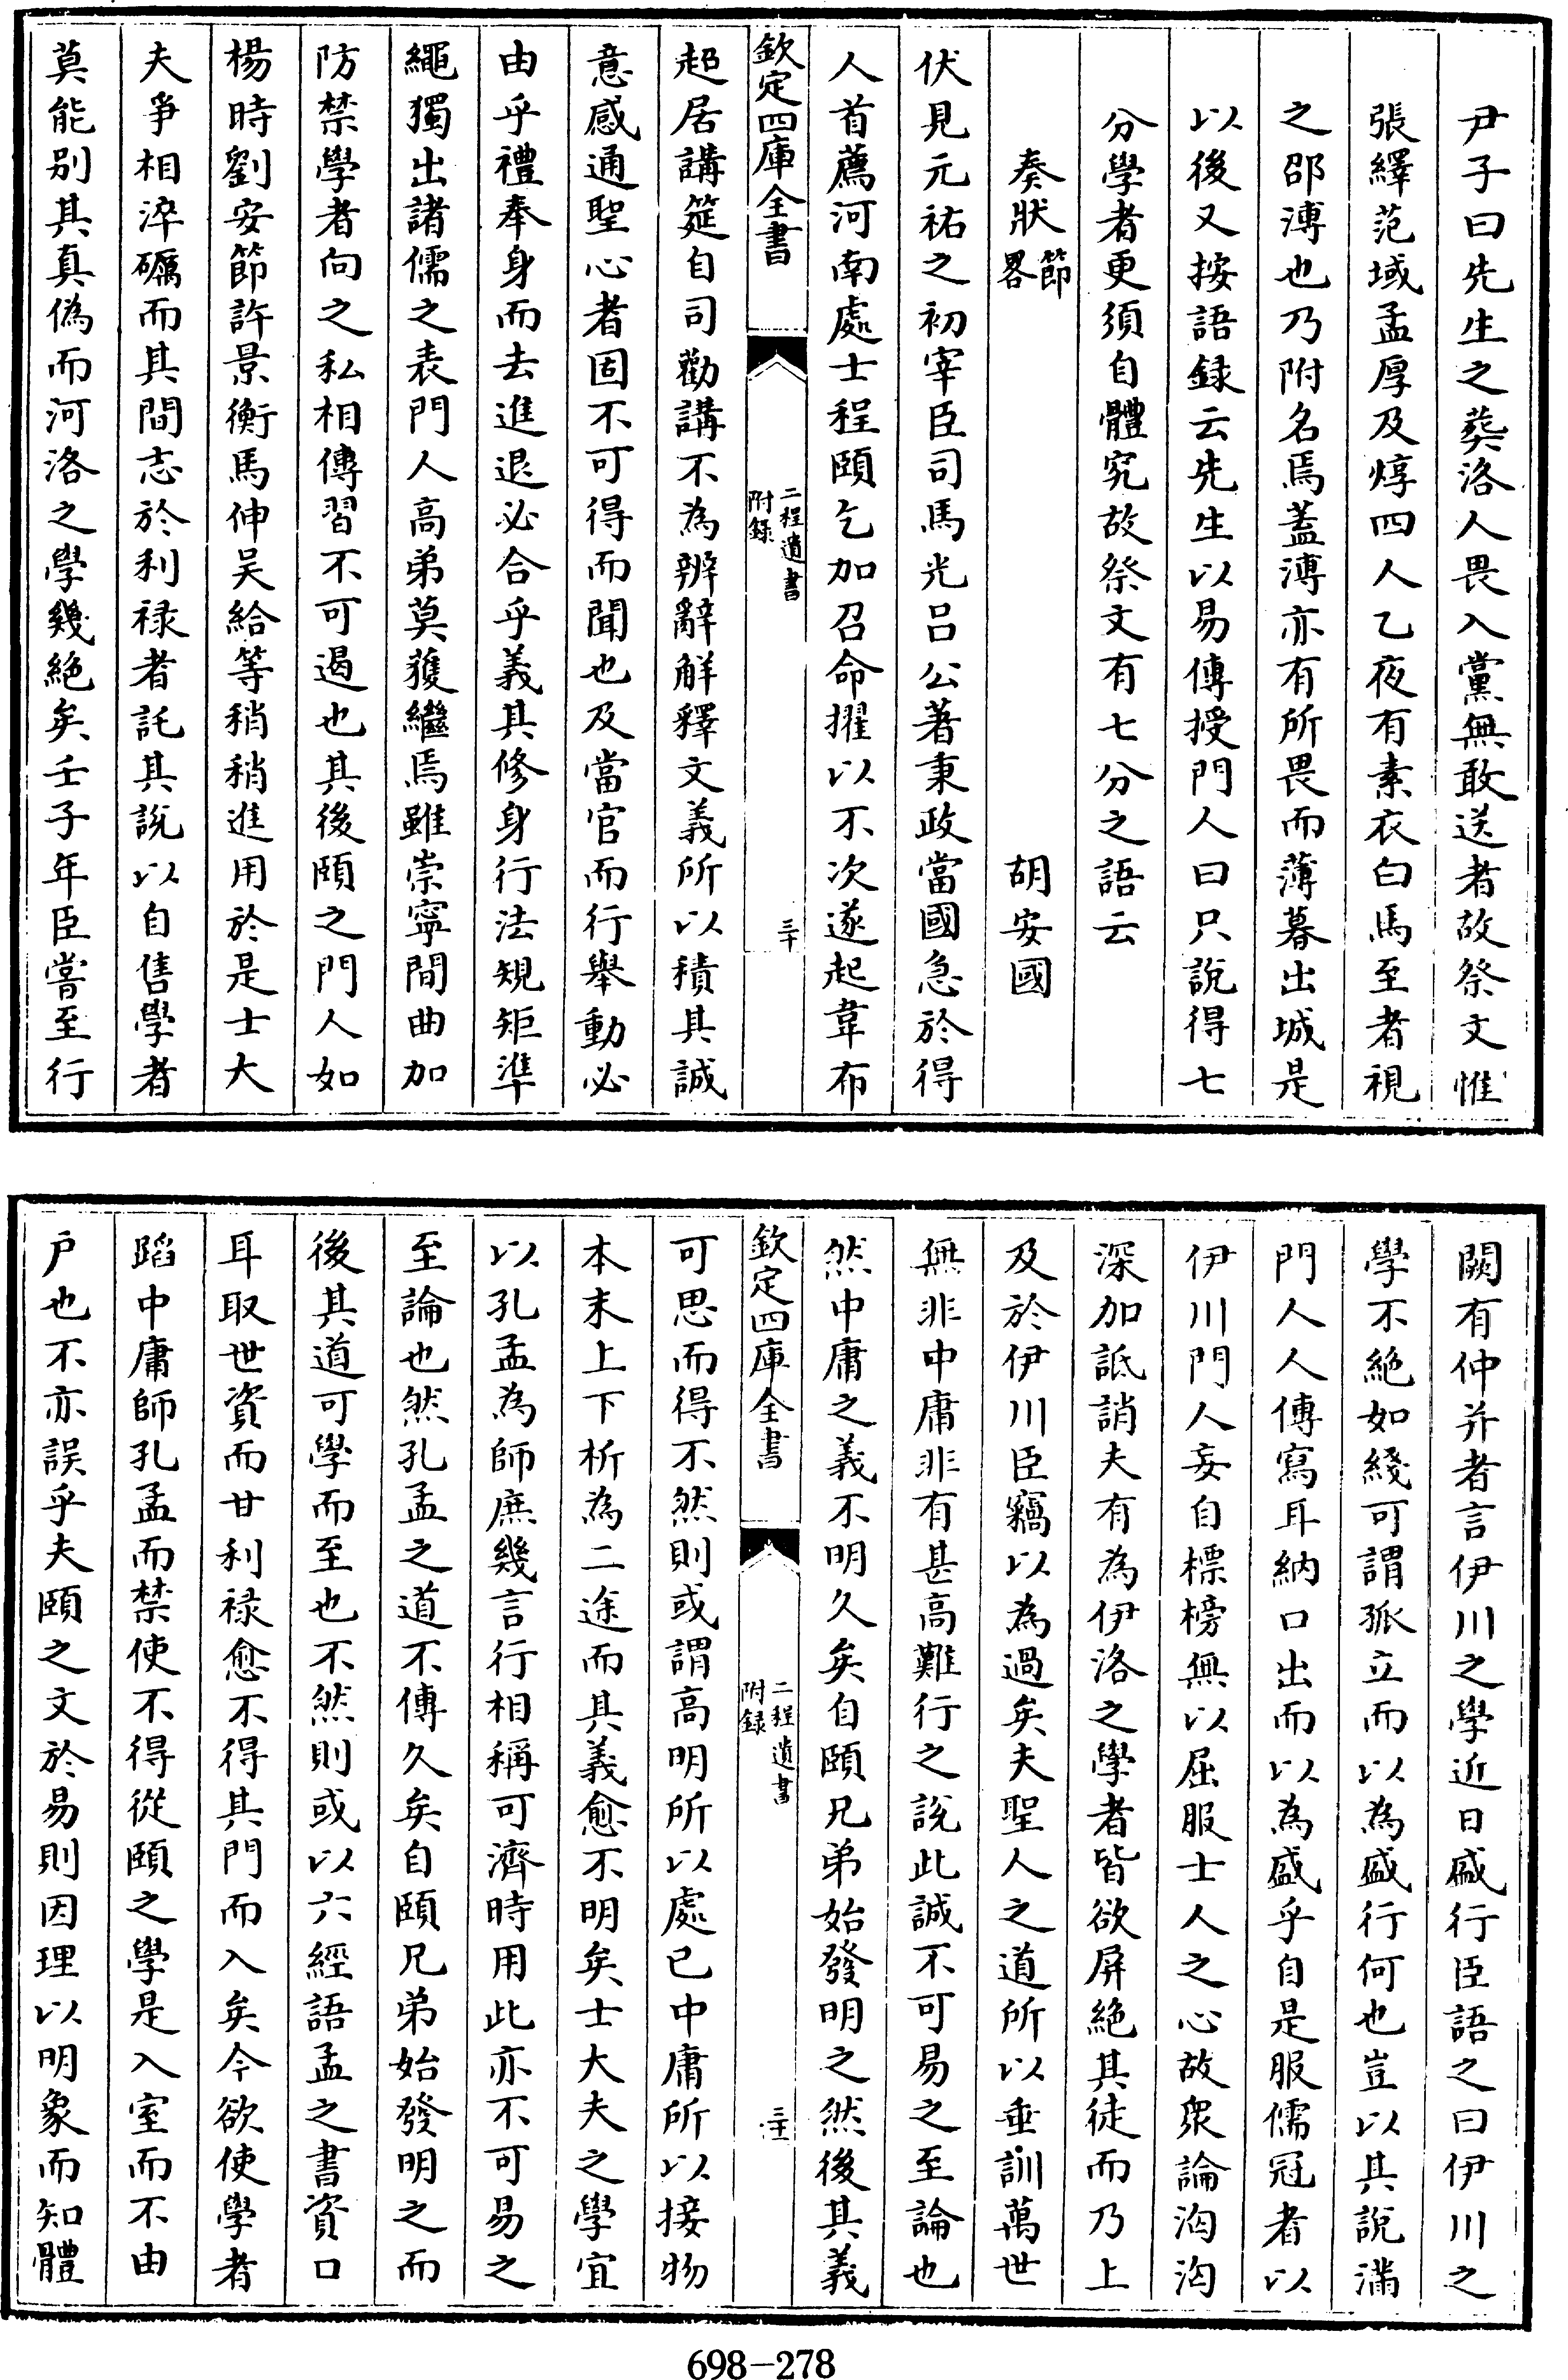 尹子曰先生之葬洛人畏入黨無敢送者故祭文惟
張繹范域孟厚及焞四人乙夜有素衣白馬至者視
之邵溥也乃附名焉蓋溥亦有所畏而薄暮出城是
以後又按語録云先生以易傳授門人曰只說得七
分學者更須自體究故祭文有七分之語云
奏狀節畧
胡安國
伏見元祐之初宰臣司馬光呂公著秉政當國急於得
人首薦河南處士程頤乞加召命擢以不次遂起韋布
欽定四庫全書
二程遺書
附録
三十
超居講筵自司勸講不為辨辭觧釋文義所以積其誠
意感通聖心者固不可得而聞也及當官而行舉動必
由乎禮奉身而去進退必合乎義其修身行法規矩準
繩獨出諸儒之表門人高弟莫獲繼焉雖崇寧間曲加
防禁學者向之私相傳習不可遏也其後頤之門人如
楊時劉安節許景衡馬伸吴給等稍稍進用於是士大
夫爭相淬礪而其間志於利禄者託其說以自售學者
莫能别其真偽而河洛之學幾絶矣壬子年臣嘗至行
闕有仲并者言伊川之學近日盛行臣語之曰伊川之
學不絶如綫可謂孤立而以為盛行何也豈以其說滿
門人人傳寫耳納口出而以為盛乎自是服儒冠者以
伊川門人妄自標榜無以屈服士人之心故衆論洶洶
深加詆誚夫有為伊洛之學者皆欲屏絶其徒而乃上
及於伊川臣竊以為過矣夫聖人之道所以垂訓萬世
無非中庸非有甚高難行之說此誠不可易之至論也
然中庸之義不明久矣自頤兄弟始發明之然後其義
欽定四庫全書
二程遺書
附録
三十一
可思而得不然則或謂高明所以處已中庸所以接物
本末上下析為二途而其義愈不明矣士大夫之學宜
以孔孟為師庶幾言行相稱可濟時用此亦不可易之
至論也然孔孟之道不傳久矣自頤兄弟始發明之而
後其道可學而至也不然則或以六經語孟之書資口
耳取世資而甘利禄愈不得其門而入矣今欲使學者
蹈中庸師孔孟而禁使不得從頤之學是入室而不由
戶也不亦誤乎夫頤之文於易則因理以明象而知體
698-278